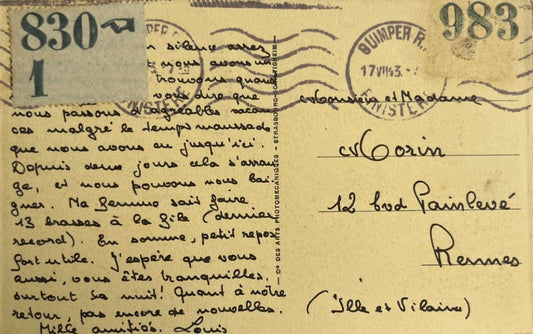 830
1
983
QUIMPER R.P.
FINISTERE
QUIMPER R.
17 VIII 3
FINISTERE
n silence assez
nous avons un
trouvons quand
vous dire que
nous passons d'agréables vacan-
ces malgré le temps maussade
que nous avons eu jusqu'ici.
Depuis deux jours cela s'arran-
ge, et nous pouvons nous bai-
gner. Ma femme sait faire
13 brasses à la file (dernier
record). En somme, petit repos
fort utile. J'espère que vous
aussi, vous êtes tranquilles.
surtout la nuit! Quant à nôtre
retour, pas encore de nouvelles.
Mille amitiés. Louis
— Cie DES ARTS PHOTOMÉCANIQUES - STRASBOURG-SCHILTIGHEIM —
Monsieur et Madame
Morin
12 bvd Painlevé
Rennes
(Ille et Vilaine)